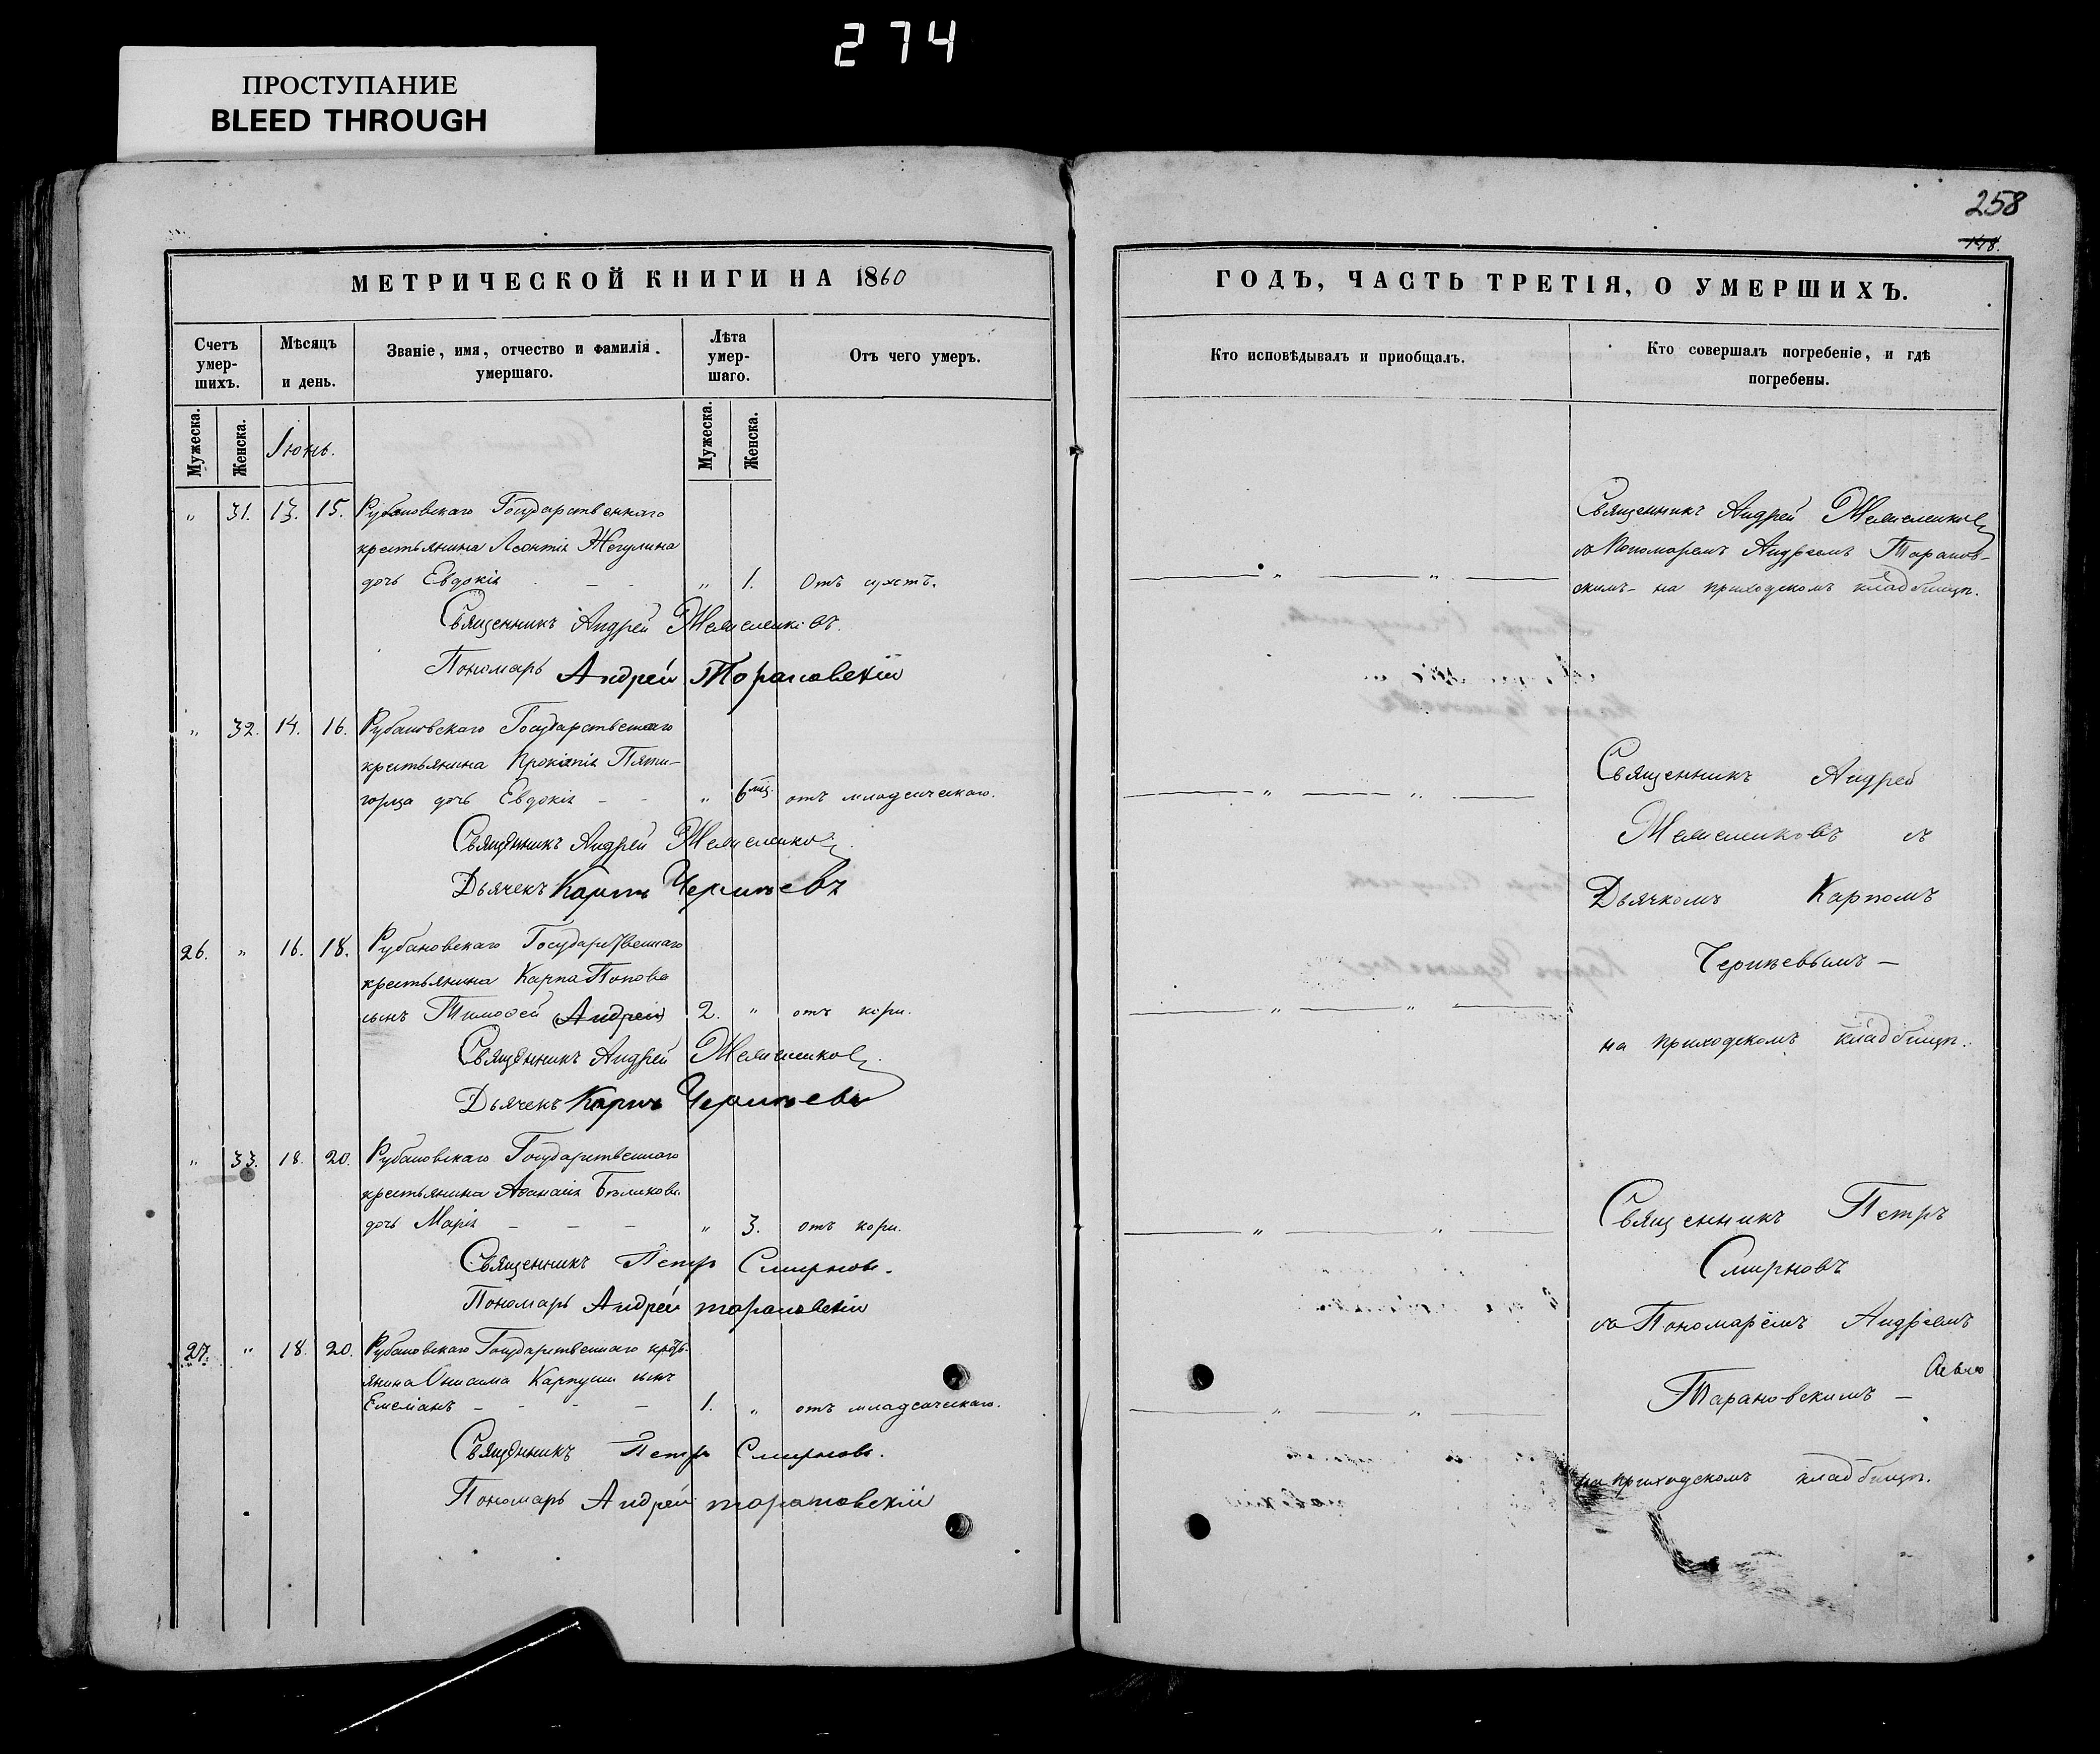 274
ПРОСТУПАНИЕ
BLEED THROUGH
258
148.
МЕТРИЧЕСКОЙ КНИГИ НА 1860
ГОДЪ, ЧАСТЬ ТРЕТІЯ, О УМЕРШИХЪ.
Счетъ умер-шихъ.
Мѣсяцъ и день.
Званіе, имя, отчество и фамилія умершаго.
Лѣта умер-шаго.
Отъ чего умеръ.
Кто исповѣдывалъ и приобщалъ.
Кто совершалъ погребеніе, и гдѣ погребены.
Мужеска.
Женска.
Іюнь.
Мужеска.
Женска.
" 31. 13. 15. Рубановскаго Государственнаго
крестьянина Леонтія Жегулина
дочь Евдокія " 1. Отъ
Священникъ Андрей
Пономарь Андрей Тарановскій
" 32. 14. 16. Рубановскаго Государственнаго
крестьянина Прокопія Пяти-
горца дочь Евдокія " 6 мц. отъ младенческаго.
Священникъ Андрей
Дьячекъ Карпъ
26. " 16. 18. Рубановскаго Государственнаго
крестьянина Карпа Попова
сынъ Тимофей (Андрей) 2. " отъ кори.
Священникъ Андрей
Дьячекъ Карпъ
" 33. 18. 20. Рубановскаго Государственнаго
крестьянина Афанасія Бѣликова
дочь Марія " 3. отъ кори.
Священникъ Петръ Смирновъ.
Пономарь Андрей Тарановскій
27. " 18. 20. Рубановскаго Государственнаго кресть-
янина Онисима Карпуши сынъ
Емеліанъ 1. " отъ младенческаго.
Священникъ Петръ Смирновъ.
Пономарь Андрей Тарановскій
Священникъ Андрей
съ Пономаремъ Андреемъ Таранов-
скимъ на приходскомъ кладбищѣ.
Священникъ Андрей
съ
Дьячкомъ Карпомъ
на приходскомъ кладбищѣ.
Священникъ Петръ
Смирновъ
съ Пономаремъ Андреемъ
Тарановскимъ –
на приходскомъ кладбищѣ.